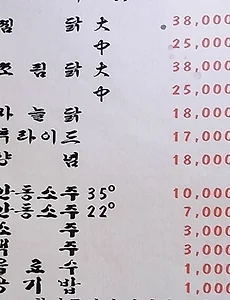 찜 닭 大 38,000
中 25,000
조 림 닭 大 38,000
中 25,000
마 늘 닭 18,000
후라이드 17,000
양 념 18,000
안동소주 35° 10,000
안동소주 22° 7,000
소 주 3,000
맥 주 3,000
음 료 수 1,000
공 기 밥 1,000